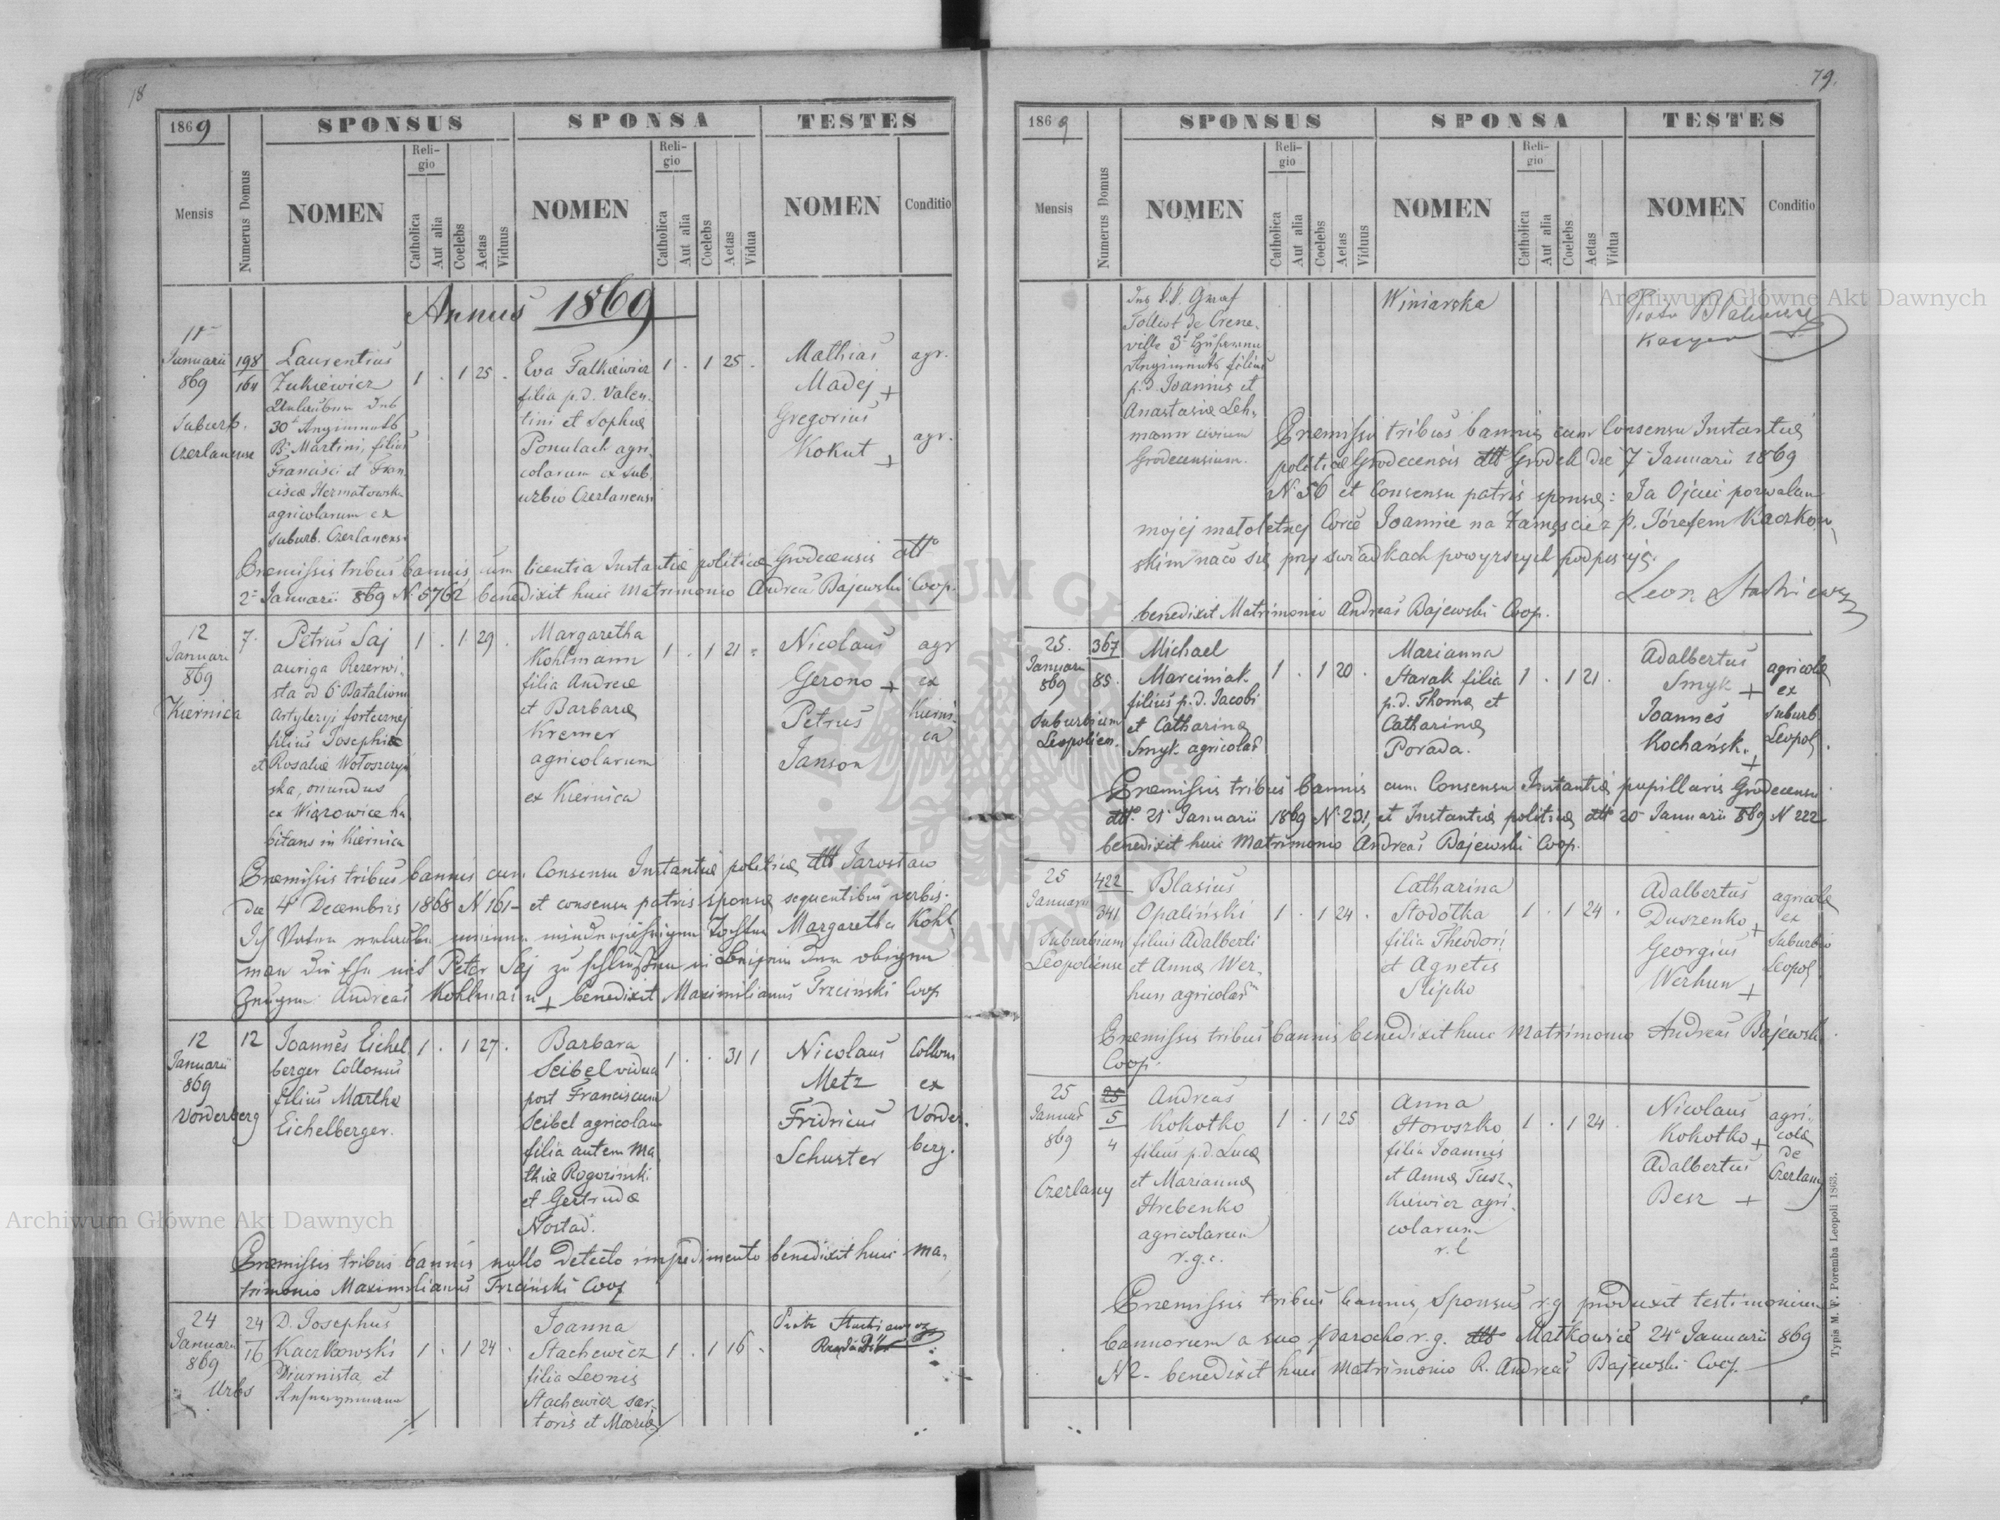 18
1869
SPONSUS
SPONSA
TESTES
Mensis
Numerus Domus
NOMEN
Religio
Catholica
Aut alia
Coelebs
Aetas
Viduus
NOMEN
Religio
Catholica
Aut alia
Coelebs
Aetas
Vidua
NOMEN
Conditio
Annus 1869
11
Januarii
869
Suburb.
Czerlanense
198
164
Laurentius
Żukiewicz
Urlauber des
30 Regiments
Martini, filius
Francisci et Fran
ciscæ Hermatowska
agricolarum ex
suburb. Czerlanensi
1 . 1 25 .
Eva Falkiewicz
filia p.d. Valen-
tini et Sophiæ
Ponulach agri
colarum ex sub
urbio Czerlanensi
1 . 1 25 .
Mathias
Madej +
Gregorius
Kokut +
agr.
agr.
Præmissis tribus bannis, cum licentia Instantiæ politicæ Grodecensis dtto
2 Januarii 869 N. 5762 benedixit huic Matrimonio Andreas Bajewski Coop.
12
Januarii
869
Kiernica
7.
Petrus Saj
auriga Rezerwi
sta od 6 Batalionu
Artyleryi fortecznej
filius Josephi
et Rosaliæ Wołoszczy
ska, oriundus
ex Wiązowice ha
bitans in Kiernica
1 . 1 29 .
Margaretha
Kohlmann
filia Andreæ
et Barbaræ
Kremer
agricolarum
ex Kiernica
1 . 1 21 .
Nicolaus
Gerono +
Petrus
Janson
agr
ex
Kierni
ca
Præmissis tribus bannis cum Consensu Instantiæ politicæ dtto Jarosław
die 4 Decembris 1868 N 161 et consensu patris sponsæ sequentibus verbis.
Ich Vater erlaube meiner minderjährigen Tochter Margaretha Kohl
man die Ehe mit Peter Saj zu schlüßen in Beisein der obigen
Zeugen Andreas Kohlmann + benedixit Maximilianus Trzciński Coop
12
Januarii
869
Vorderberg
12
Joannes Eichel
berger Collonus
filius Marthæ
Eichelberger.
1 . 1 27 .
Barbara
Seibel vidua
post Franciscum
Seibel agricolam
filia autem Ma
thiæ Rogoziński
et Gertrudæ
Nostad.
1 . . 31 1
Nicolaus
Metz
Fridricus
Schuster
Collon
ex
Vorder
berg.
Præmissis tribus bannis nullo detecto impedimento benedixit huic ma,
trimonio Maximilianus Trzciński Coop
24
Januarii
869
Urbs
24
16
D. Josephus
Kaczkowski
Diurnista et
1 . 1 24 .
Joanna
Stachewicz
filia Leonis
Stachewicz sar
toris et Mariæ
1 . 1 16 .
79.
1869
SPONSUS
SPONSA
TESTES
Mensis
Numerus Domus
NOMEN
Religio
Catholica
Aut alia
Coelebs
Aetas
Viduus
NOMEN
Religio
Catholica
Aut alia
Coelebs
Aetas
Vidua
NOMEN
Conditio
Graf
Folliot de Crene-
ville
Regiments filius
p.d. Joannis et
Anastasiæ Leh,
mann civium
Grodecensium.
Winiarska
Præmissis tribus bannis cum Consensu Instantiæ
politicæ Grodecensis dtto Grodek die 7 Januarii 1869
N. 56 et Consensu patris sponsæ: Ja Ojciec pozwalam
mojej małoletnej Corce Joannie na Zamęscie z p. Józefem Kaczkow,
skim na co się przy swiadkach powyższych podpisuję.
Leon Stachiewicz
benedixit Matrimonio Andreas Bajewski Coop.
25.
Januarii
869
Suburbium
Leopolien.
367
85.
Michael
Marciniak
filius p.d. Jacobi
et Catharinæ
Smyk agricolar
1 . 1 20 .
Marianna
Starak filia
p.d. Thomæ et
Catharinæ
Porada.
1 . 1 21 .
Adalbertus
Smyk +
Joannes
Kochańsk. +
agricolæ
ex
suburb
Leopol.
Præmissis tribus bannis cum Consensu Instantiæ pupillaris Grodecensis
dtto. 21 Januarii 1869 N. 231, et Instantiæ politicæ dtto 20 Januarii 869 N 222
benedixit huic Matrimonio Andreas Bajewski Coop.
25
Januarii
Suburbium
Leopoliense
422
341
Blasius
Opaliński
filius Adalberti
et Annæ Wer-
hun agricolar
1 . 1 24 .
Catharina
Stodółka
filia Theodori
et Agnetis
Slipko
1 . 1 24 .
Adalbertus
Duszenko +
Georgius
Werhun +
agricolæ
ex
Suburbio
Leopol
Præmissis tribus bannis benedixit huic Matrimonio Andreas Bajewski
Coop.
25
Januar
869
Czerlany
25
5
4
Andreas
Kokotko
filius p.d. Lucæ
et Mariannæ
Hrebenko
agricolarum
r.g.c.
1 . 1 25
Anna
Horoszko
filia Joannis
et Annæ Tusz-
kiewicz agri-
colarum
r.l
1 . 1 24 .
Nicolaus
Kokotko +
Adalbertus
Besz +
agri-
colæ
de
Czerlany
Præmissis tribus bannis, Sponsus r.g. produxit testimonium
bannorum a suo Parocho r.g. dtto Małkowice 24 Januarii 869
N 2 - benedixit huic Matrimonio R. Andreas Bajewski Coop
Typis M. F. Poremba Leopoli 1863.
Archiwum Główne Akt Dawnych
Archiwum Główne Akt Dawnych